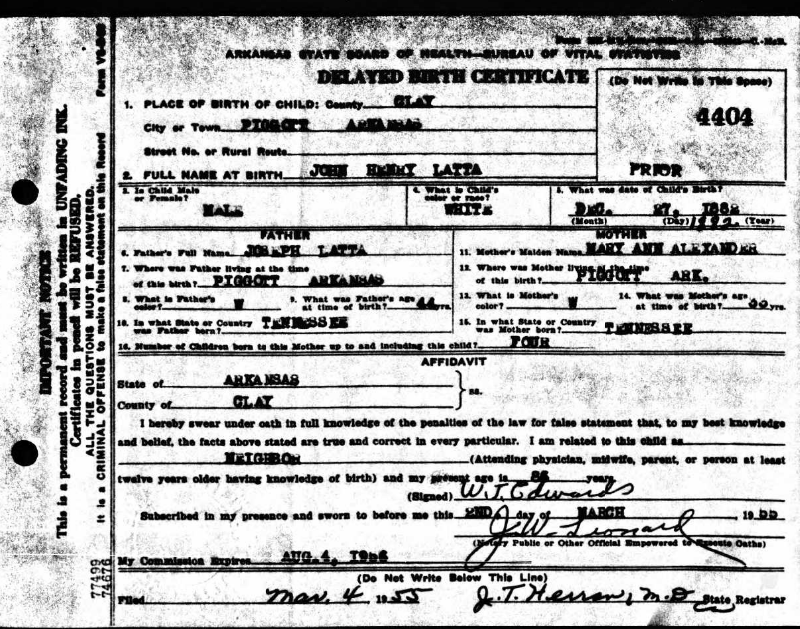 ARKANSAS STATE BOARD OF HEALTH—BUREAU OF VITAL STATISTICS
DELAYED BIRTH CERTIFICATE
(Do Not Write In This Space)
4404
1. PLACE OF BIRTH OF CHILD: County CLAY
City or Town PIGGOTT ARKANSAS
Street No. or Rural Route
2. FULL NAME AT BIRTH JOHN HENRY LATTA
PRIOR
3. Is Child Male or Female? MALE
4. What is Child's color or race? WHITE
5. What was date of Child's Birth?
DEC. 27, 1882
(Month) (Day) 1892 (Year)
FATHER
6. Father's Full Name JOSEPH LATTA
7. Where was Father living at the time
of this birth? PIGGOTT ARKANSAS
8. What is Father's color? W
9. What was Father's age at time of birth? 44 yrs.
10. In what State or Country was Father born? TENNESSEE
MOTHER
11. Mother's Maiden Name MARY ANN ALEXANDER
12. Where was Mother living at the time
of this birth? PIGGOTT ARK.
13. What is Mother's color? W
14. What was Mother's age at time of birth? yrs.
15. In what State or Country was Mother born? TENNESSEE
16. Number of Children born to this Mother up to and including this child? FOUR
AFFIDAVIT
State of ARKANSAS
County of CLAY
ss.
I hereby swear under oath in full knowledge of the penalties of the law for false statement that, to my best knowledge
and belief, the facts above stated are true and correct in every particular. I am related to this child as
NEIGHBOR (Attending physician, midwife, parent, or person at least
twelve years older having knowledge of birth) and my present age is years
(Signed) W. T. Edwards
Subscribed in my presence and sworn to before me this 2ND day of MARCH 1955
J. W. Leonard
(Notary Public or Other Official Empowered to Execute Oaths)
My Commission Expires AUG. 4, 1956
(Do Not Write Below This Line)
Filed Mar. 4 1955 J. T. Herron, M.D State Registrar
Form VS-
IMPORTANT NOTICE
This is a permanent record and must be written in UNFADING INK.
Certificates in pencil will be REFUSED.
ALL THE QUESTIONS MUST BE ANSWERED.
It is a CRIMINAL OFFENSE to make a false statement on this Record
77499
74676